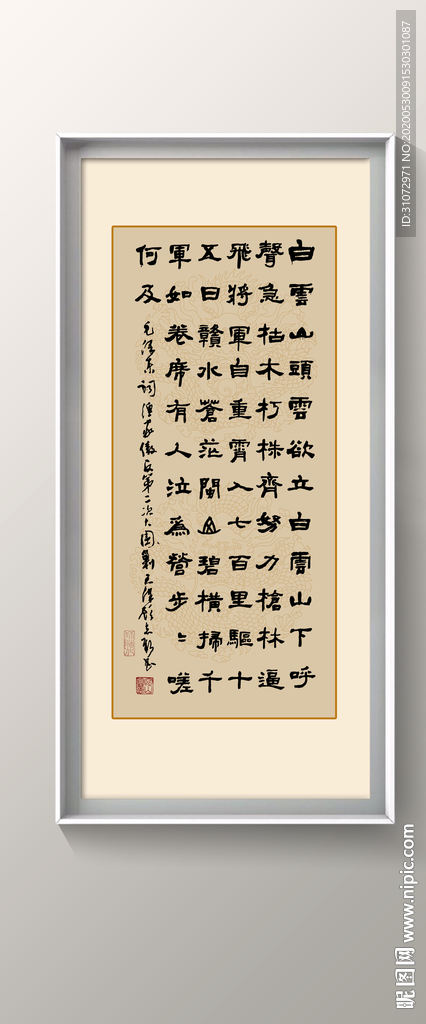 白雲山頭雲欲立白雲山下呼
聲急枯木朽株齊努力槍林逼
飛將軍自重霄入七百里驅十
五日贛水蒼茫閩山碧橫掃千
軍如卷席有人泣爲營步〻嗟
何及
毛澤東詞漁家傲反第二次大圍剿
ID:31072971 NO:20200530091530301087
昵图网 www.nipic.com